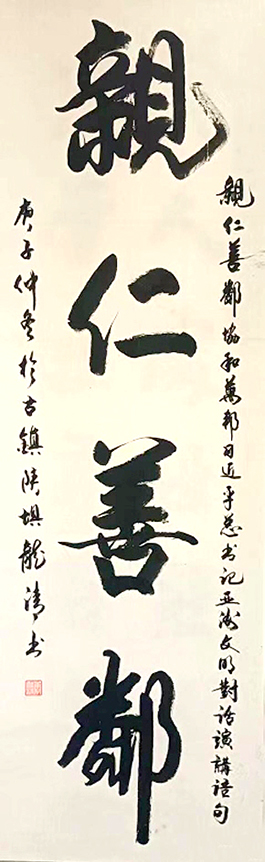 親仁善鄰協和萬邦習近平總书记亚洲文明對话演講語句
親仁善鄰
庚子仲冬於古鎮陕壩龍清书